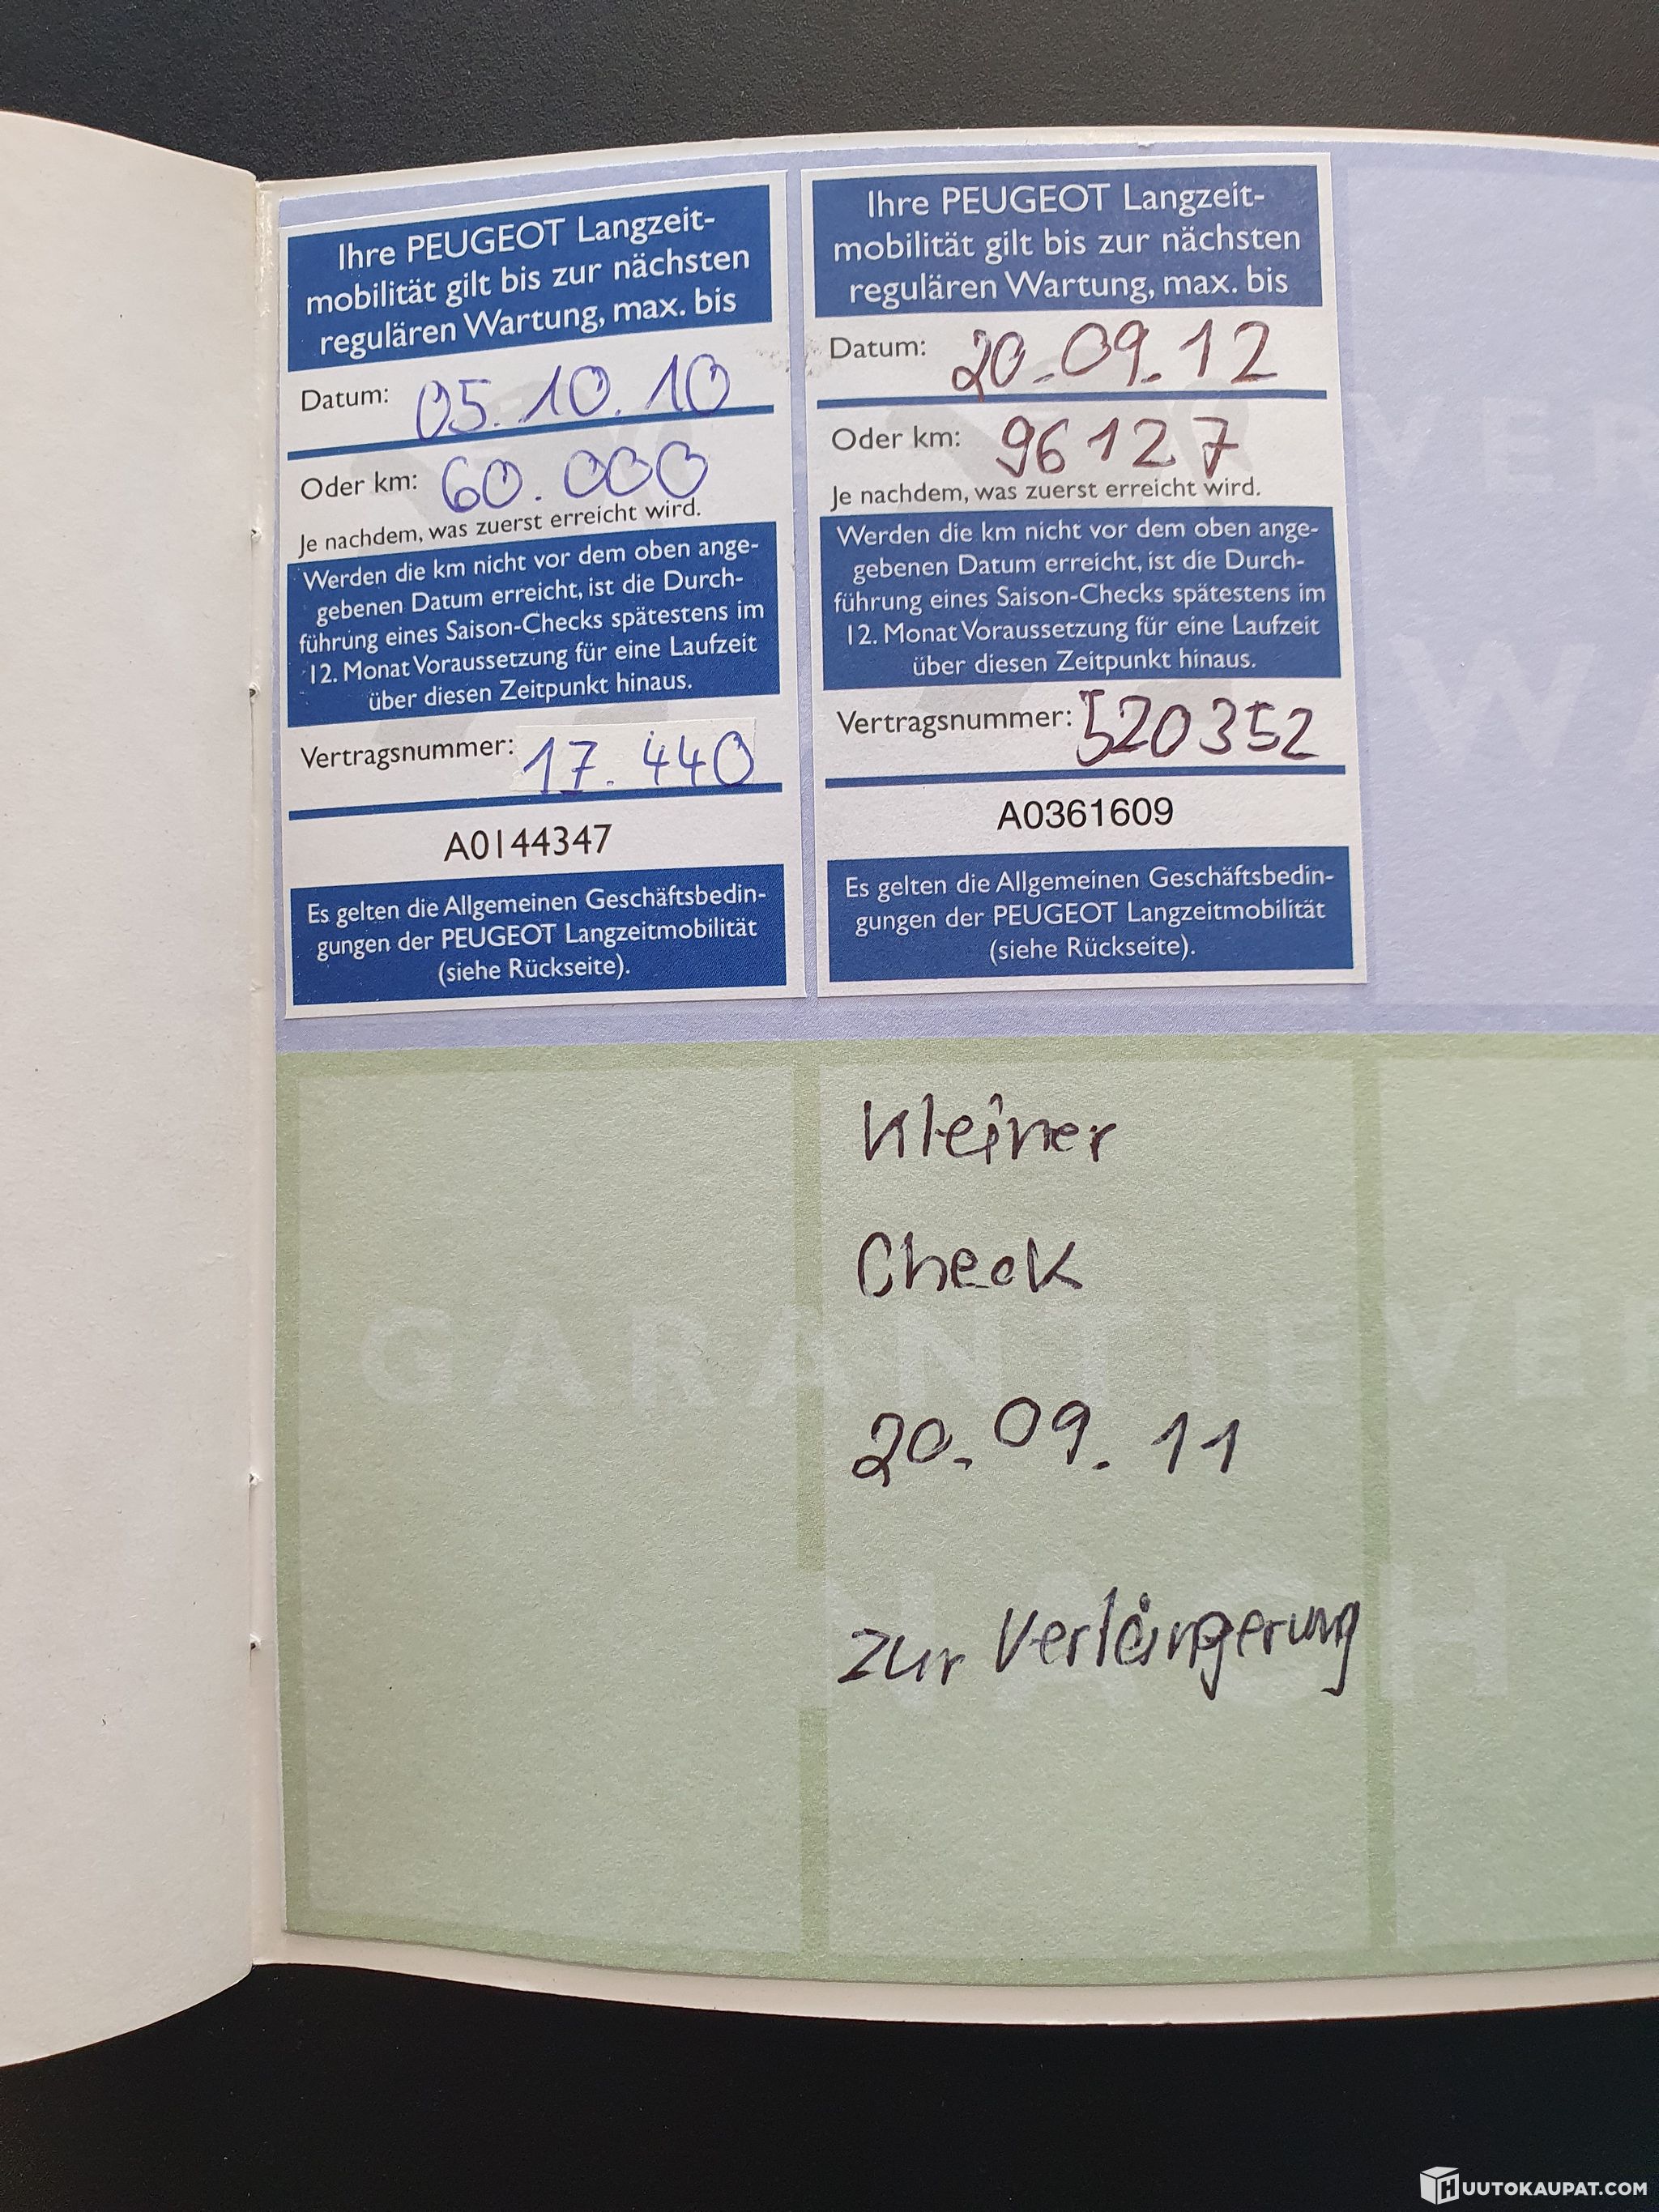 Ihre PEUGEOT Langzeit-
mobilität gilt bis zur nächsten
regulären Wartung, max. bis
Datum: 05.10.10
Oder km: 60.000
Je nachdem, was zuerst erreicht wird.
Werden die km nicht vor dem oben ange-
gebenen Datum erreicht, ist die Durch-
führung eines Saison-Checks spätestens im
12. Monat Voraussetzung für eine Laufzeit
über diesen Zeitpunkt hinaus.
Vertragsnummer: 17.440
A0144347
Es gelten die Allgemeinen Geschäftsbedin-
gungen der PEUGEOT Langzeitmobilität
(siehe Rückseite).
Ihre PEUGEOT Langzeit-
mobilität gilt bis zur nächsten
regulären Wartung, max. bis
Datum: 20.09.12
Oder km: 96127
Je nachdem, was zuerst erreicht wird.
Werden die km nicht vor dem oben ange-
gebenen Datum erreicht, ist die Durch-
führung eines Saison-Checks spätestens im
12. Monat Voraussetzung für eine Laufzeit
über diesen Zeitpunkt hinaus.
Vertragsnummer: 520352
A0361609
Es gelten die Allgemeinen Geschäftsbedin-
gungen der PEUGEOT Langzeitmobilität
(siehe Rückseite).
VER
WA
Kleiner
Check
GARANTIEVER
20.09.11
zur Verlängerung
NACH
HUUTOKAUPAT.COM